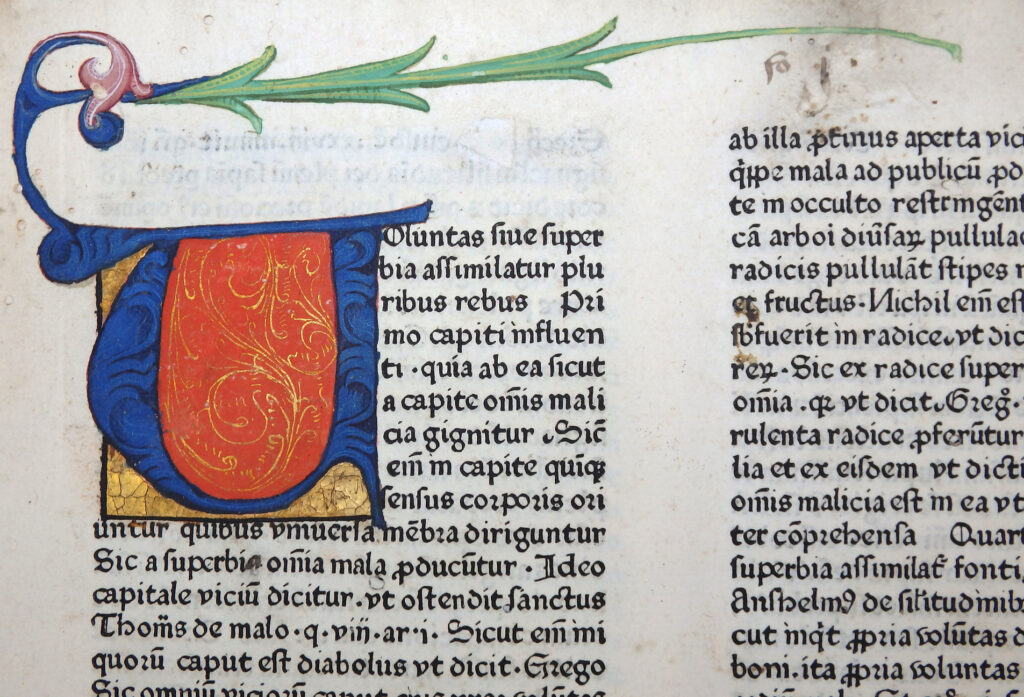 Voluntas siue super
bia assimilatur plu
ribus rebus Pri
mo capiti influen
ti · quia ab ea sicut
a capite om̄is mali
cia gignitur . Sic̄
em̄ in capite quinqꝫ
sensus corporis ori
untur quibus vniuersa mēbra diriguntur
Sic a superbia om̄ia mala ꝓducūtur · Ideo
capitale viciū dicitur . vt ostendit sanctus
Thom̄s de malo · q · viij · ar · i · Sicut em̄ ini
quorū caput est diabolus vt dicit · Grego
Sic omniū viciorū caput
ab illa ꝓtinus aperta
mala ad publicū
te in occulto restringēt
cā arboi diūsaꝝ
radicis pullulāt stipes
et fructus · Nichil em̄
sbfuerit in radice . vt
reꝝ · Sic ex radice super
om̄ia . vt dicit . Greg
rulenta radice ꝓferūtur
lia et ex eisdem vt dicti
om̄is malicia est in ea vt
ter cōprehensa Quart
superbia assimilat fonti
Anshelmꝰ de
cut inq̇t ꝓpria volūtas
boni . ita ꝓpria voluntas